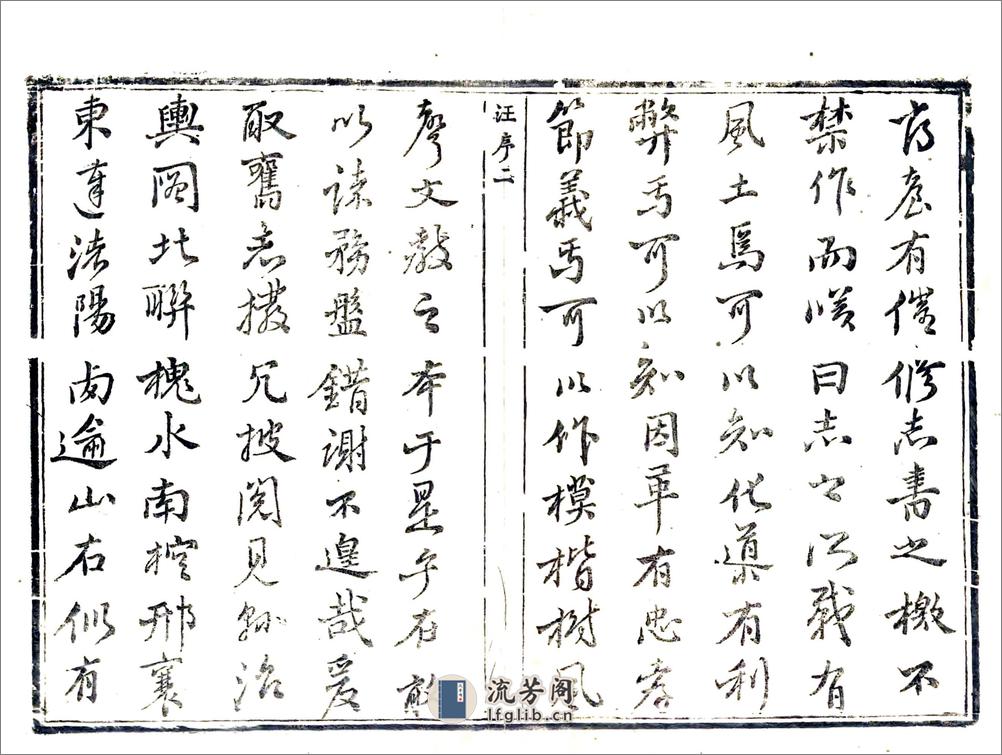 有催修志書之檄不
禁作而嘆曰志之所載有
風土焉可以知化導有利
弊焉可以知因革有忠孝
節義焉可以作模楷樹風
汪序二
聲文教之本于是乎在敢
以諉務盤錯謝不遑哉爰
取舊志撥冗披閱見縣治
輿圖北聯槐水南控邢襄
東達陽西逾山右似有
流芳阁
lfglib.cn